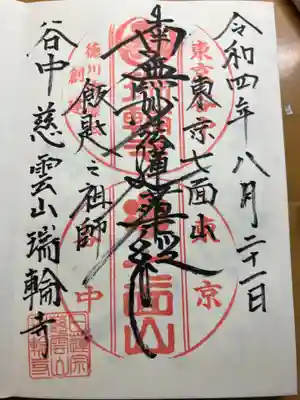 令和四年八月二十一日
東京七面山
南無妙法蓮華経
飯匙之祖師
谷中 慈雲山瑞輪寺
東京
谷中
七面山
日蓮宗
慈雲山
瑞輪寺